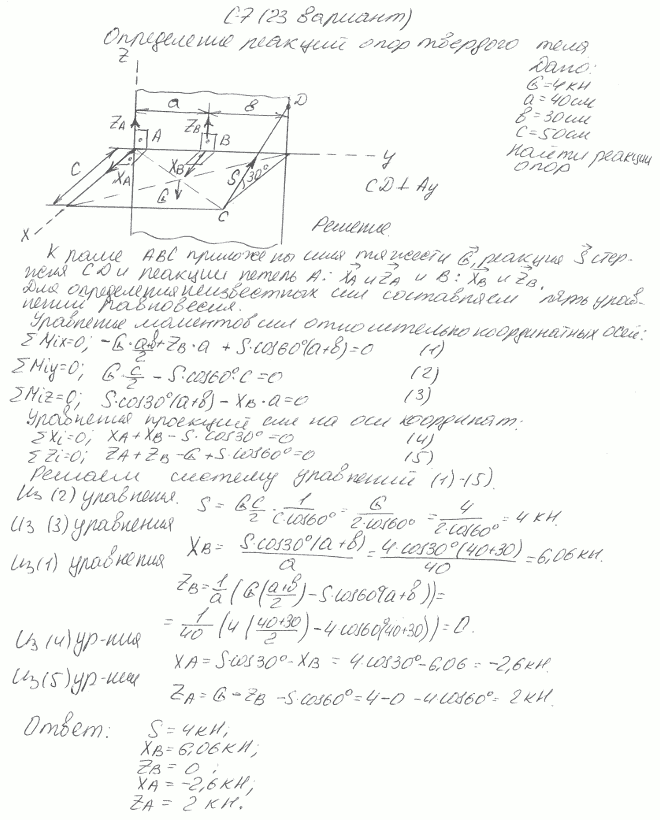 С-7 (23 вариант)
Определение реакций опор твердого тела
Дано:
G=4кН
a=40см
в=30см
с=50см
Найти реакции
опор
Z
a
в
D
ZA
A
ZB
B
C
XA
XB
S
30°
y
G
C
X
CD⊥Ay
Решение.
К раме ABC приложены сила тяжести G, реакция S стер-
жня CD и реакции петель A: XA и ZA и B: XB и ZB.
Для определения неизвестных сил составляем пять урав-
нений равновесия.
Уравнение моментов сил относительно координатных осей:
ΣMix=0; -G·(a+в)/2+ZB·a+S·cos60°(a+в)=0 (1)
ΣMiy=0; G·C/2-S·cos60°·C=0 (2)
ΣMiz=0; S·cos30°(a+в)-XB·a=0 (3)
Уравнения проекций сил на оси координат:
ΣXi=0; XA+XB-S·cos30°=0 (4)
ΣZi=0; ZA+ZB-G+S·cos60°=0 (5)
Решаем систему уравнений (1)-(5).
Из (2) уравнения. S=GC/2·1/(C·cos60°)=G/(2·cos60°)=4/(2·cos60°)=4кН.
Из (3) уравнения XB=S·cos30°(a+в)/a=4·cos30°(40+30)/40=6,06кН.
Из (1) уравнения
ZB=1/a(G(a+в)/2)-S·cos60°(a+в))=
=1/40(4(40+30)/2)-4cos60°(40+30))=0.
Из (4) ур-ния
XA=S·cos30°-XB=4·cos30°-6,06=-2,6кН.
Из (5) ур-ния
ZA=G-ZB-S·cos60°=4-0-4cos60°=2кН.
Ответ: S=4кН;
XB=6,06кН;
ZB=0;
XA=-2,6кН;
ZA=2кН.